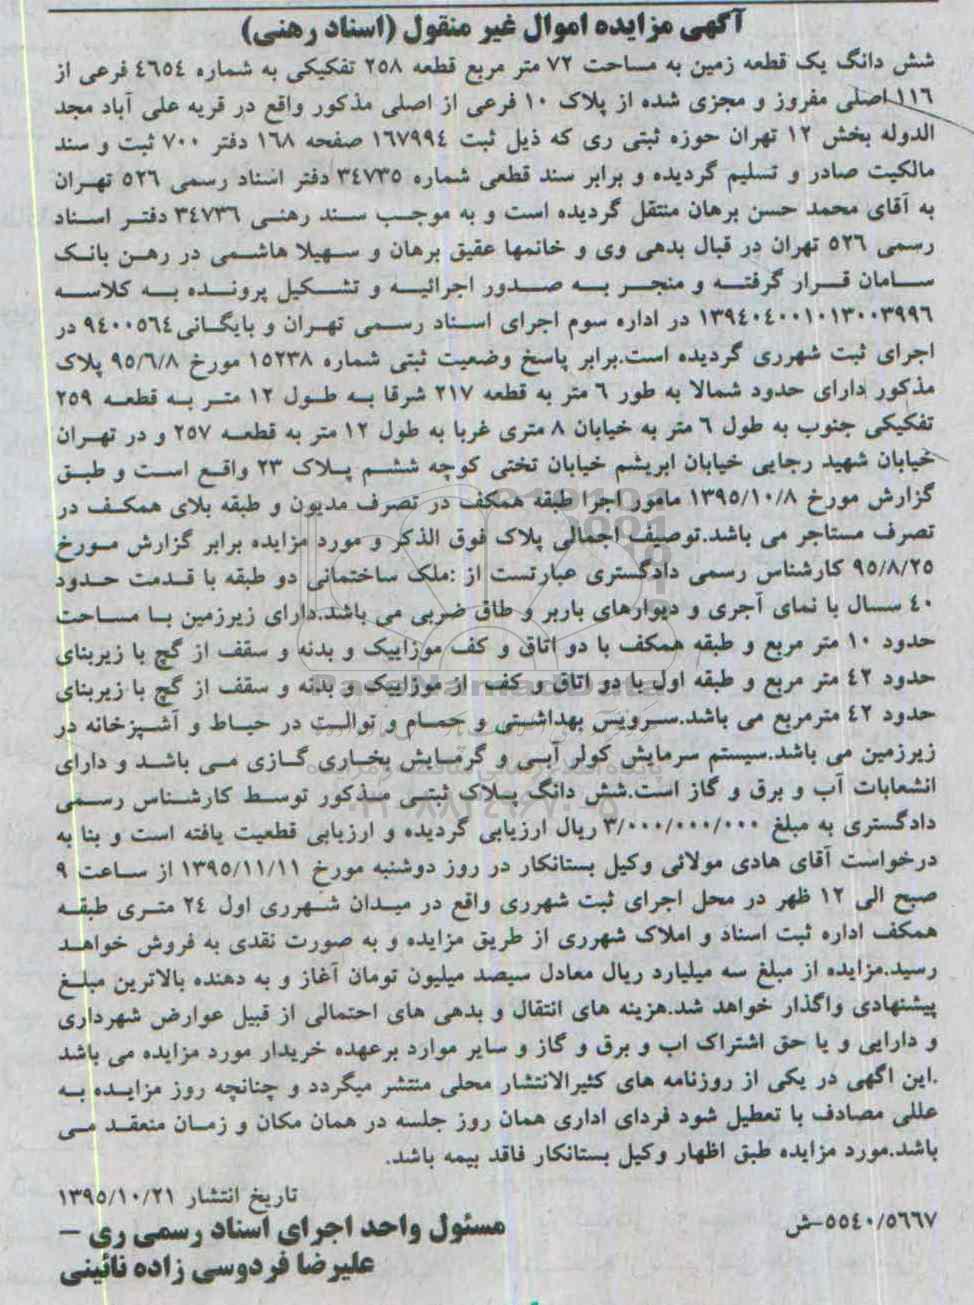 آگهی مزایده اموال غیر منقول (اسناد رهنی)
شش دانگ یک قطعه زمین به مساحت ۷۲ متر مربع قطعه ۲۵۸ تفکیکی به شماره ٤٦٥٤ فرعی از
۱۱٦ اصلی مفروز و مجزی شده از پلاک ۱۰ فرعی از اصلی مذکور واقع در قریه علی آباد مجد
الدوله بخش ۱۲ تهران حوزه ثبتی ری که ذیل ثبت ۱٦۷۹۹٤ صفحه ۱٦۸ دفتر ۷۰۰ ثبت و سند
مالکیت صادر و تسلیم گردیده و برابر سند قطعی شماره ۳٤۷۳۵ دفتر اسناد رسمی ۵۲٦ تهران
به آقای محمد حسن برهان منتقل گردیده است و به موجب سند رهنی ۳٤۷۳٦ دفتر اسناد
رسمی ۵۲٦ تهران در قبال بدهی وی و خانمها عقیق برهان و سهیلا هاشمی در رهن بانک
سامان قرار گرفته و منجر به صدور اجرائیه و تشکیل پرونده به کلاسه
۱۳۹٤۰٤۰۰۱۰۱۳۰۰۳۹۹٦ در اداره سوم اجرای اسناد رسمی تهران و بایگانی ۹٤۰۰۵٦٤ در
اجرای ثبت شهرری گردیده است.برابر پاسخ وضعیت ثبتی شماره ۱۵۲۳۸ مورخ ۹۵/٦/۸ پلاک
مذکور دارای حدود شمالا به طور ٦ متر به قطعه ۲۱۷ شرقا به طول ۱۲ متر به قطعه ۲۵۹
تفکیکی جنوب به طول ٦ متر به خیابان ۸ متری غربا به طول ۱۲ متر به قطعه ۲۵۷ و در تهران
خیابان شهید رجایی خیابان ابریشم خیابان تختی کوچه ششم پلاک ۲۳ واقع است و طبق
گزارش مورخ ۱۳۹۵/۱۰/۸ مامور اجرا طبقه همکف در تصرف مدیون و طبقه بلای همکف در
تصرف مستاجر می باشد.توصیف اجمالی پلاک فوق الذکر و مورد مزایده برابر گزارش مورخ
۹۵/۸/۲۵ کارشناس رسمی دادگستری عبارتست از :ملک ساختمانی دو طبقه با قدمت حدود
٤۰ سال با نمای آجری و دیوارهای باربر و طاق ضربی می باشد.دارای زیرزمین با مساحت
حدود ۱۰ متر مربع و طبقه همکف با دو اتاق و کف موزاییک و بدنه و سقف از گچ با زیربنای
حدود ٤۲ متر مربع و طبقه اول با دو اتاق و کف از موزاییک و بدنه و سقف از گچ با زیربنای
حدود ٤۲ مترمربع می باشد.سرویس بهداشتی و حمام و توالت در حیاط و آشپزخانه در
زیرزمین می باشد.سیستم سرمایش کولر آبی و گرمایش بخاری گازی می باشد و دارای
انشعابات آب و برق و گاز است.شش دانگ پلاک ثبتی مذکور توسط کارشناس رسمی
دادگستری به مبلغ ۳/۰۰۰/۰۰۰/۰۰۰ ریال ارزیابی گردیده و ارزیابی قطعیت یافته است و بنا به
درخواست آقای هادی مولائی وکیل بستانکار در روز دوشنبه مورخ ۱۳۹۵/۱۱/۱۱ از ساعت ۹
صبح الی ۱۲ ظهر در محل اجرای ثبت شهرری واقع در میدان شهرری اول ۲٤ متری طبقه
همکف اداره ثبت اسناد و املاک شهرری از طریق مزایده و به صورت نقدی به فروش خواهد
رسید.مزایده از مبلغ سه میلیارد ریال معادل سیصد میلیون تومان آغاز و به دهنده بالاترین مبلغ
پیشنهادی واگذار خواهد شد.هزینه های انتقال و بدهی های احتمالی از قبیل عوارض شهرداری
و دارایی و یا حق اشتراک اب و برق و گاز و سایر موارد برعهده خریدار مورد مزایده می باشد
.این اگهی در یکی از روزنامه های کثیرالانتشار محلی منتشر میگردد و چنانچه روز مزایده به
عللی مصادف با تعطیل شود فردای اداری همان روز جلسه در همان مکان و زمان منعقد می
باشد.مورد مزایده طبق اظهار وکیل بستانکار فاقد بیمه باشد.
تاریخ انتشار ۱۳۹۵/۱۰/۲۱
۵۵٤۰/۵٦٦۷-ش
مسئول واحد اجرای اسناد رسمی ری –
علیرضا فردوسی زاده نائینی